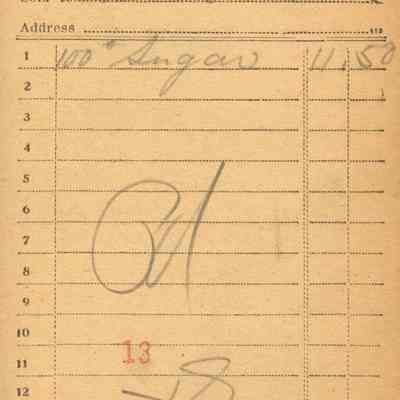 Address
1 100# Sugar 11.50
2
3
4
5
6
7
8
9
10
13
11
12